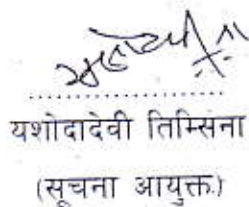 यशोदादेवी तिम्सिना
(सूचना आयुक्त)